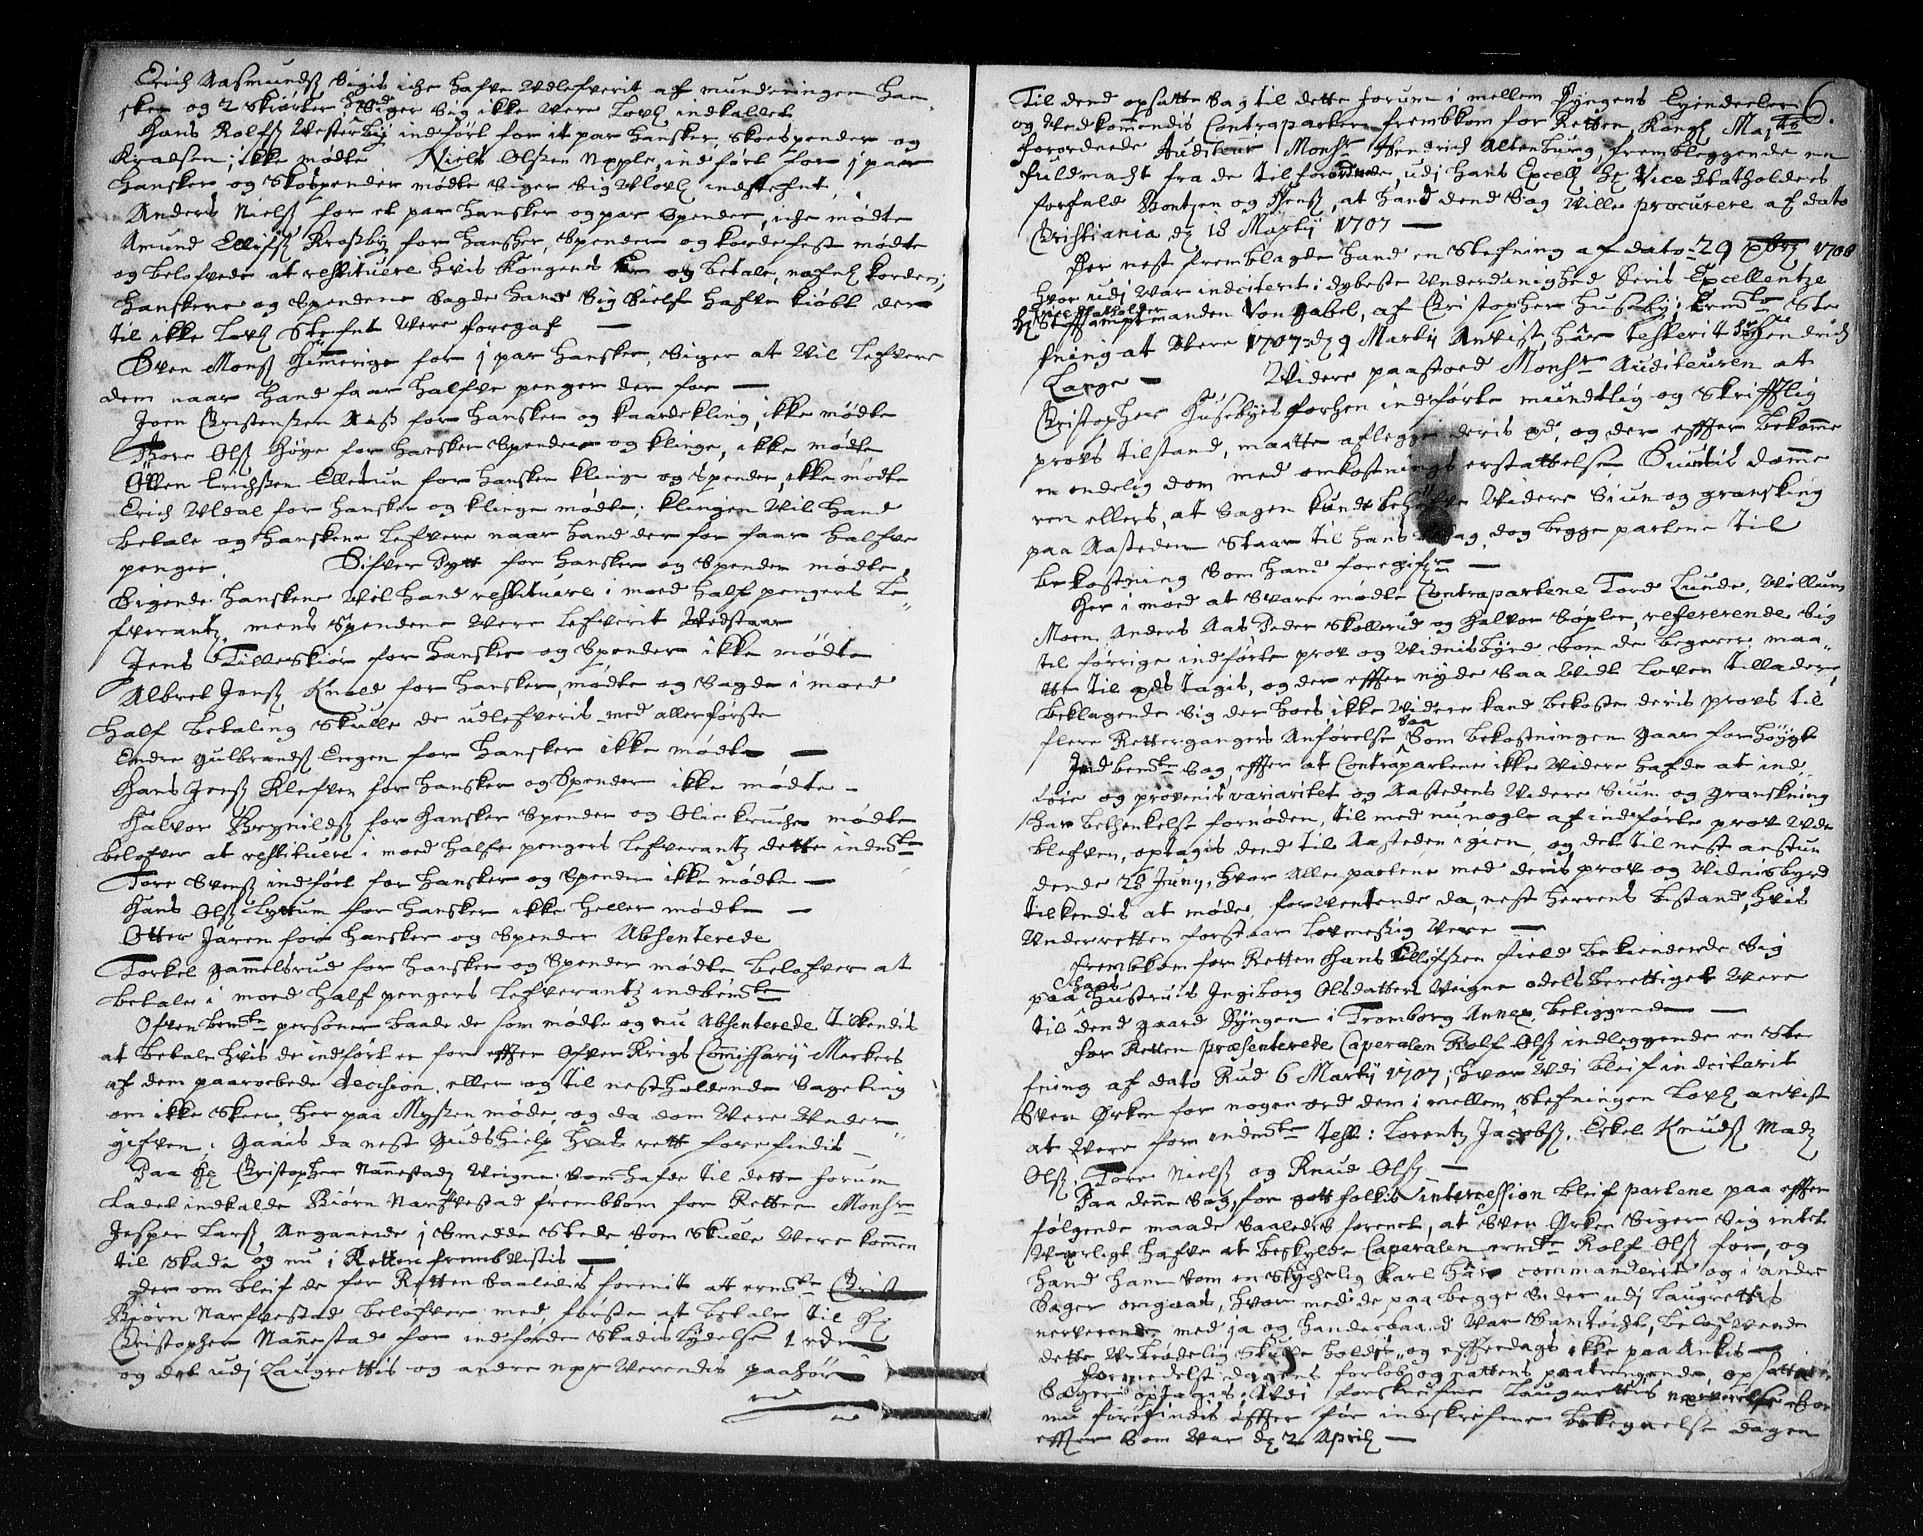 Erich Rasmundß Sigis iche hafve Udlefverit af munderingen han-
sker og 2 Skiorter, hand Siger Sig ikke vere lovl indkallet
Hans Rolfß Vesterbÿ indført for it par hansker, Skoespender og
Kradsen; ikke mødte Niels Olßen Opple, indført for j par
hansker og Skospender mødte Siger Sig Ulovl indstefnt,
Anders Nielß for et par hansker og par Spender, iche mødte
Amund Ellifß Kroßbÿ for hansker, Spender og kordefest mødte
og belofvede at restituere hvis Kongens er og betale, nafnl korden,
hanskerne og Spenderne Sagde hand Sig Sielf hafve kiøbt der
til ikke lovl Stefnt vere foregaf —
Sven Monß Himerige for j par hansker, Siger at vil lefvere
dem naar hand faar halfve penger der for —
Joen Christenßen Aaß for hansker og kaardekling, ikke mødte
Thore Olß Høye for hansker Spender og klinge, ikke mødte
Often Erichßen Ellesrun for hansker klinge og Spender, ikke mødte
Erich Uldal for hansker og klinge mødte; klingen vil hand
betale og hanskerne lefvere naar hand der for faar halfve
penger. Sifver Dÿtt for hansker og Spender mødte,
Sigende hanskerne vil hand restituere i moed half pengers Le-
fverantz, mens Spenderne vere lefverit vedstaar
Jens Tilleskiør for hansker og Spender ikke mødte
Albret Jenß Knold for hansker, mødte og Sagde i moed
half betaling Skulle de udlefveris med allerførste
Endre Gulbrandß Engen for hansker ikke mødte —
Hans Jenß Klefven for hansker og Spender ikke mødte —
Halvor Brynildß for hansker Spender og Olie kruche mødte
belofver at restituere i moed halfe pengers Lefverantz dette indmte
Tore Svenß indført for hansker og Spender ikke mødte —
Hans Olß Lyttum for hansker ikke heller mødte —
Otter Jaren for hansker og Spender Absenterede
Torkel Gammelsrud for hansker og Spender mødte belofver at
betale i moed half pengers Lefverantz indbemte
Ofven bemte personer baade de som mødte og nu Absenterede tilkendis
at betale hvis de indført er for effter Ofver Krigs Commissarij Merkers
af dem paaroebede decision, eller og til nestholdende Sageting
om ikke Skeer, her paa Mÿßen møde, og da dom vere under-
gifven; Gaais da nest Guds hielp hvis rett forefindis —
Paa Hr Christopher Nannestads veigne, Som hafde til dette forum
ladet indkalde Biørn Narfvestad frembkom for Retten Monsr
Jesper Larß, Angaaende j Smedde Stede, Som Skulle vere kommen
til Skade og nu i Retten frembvistis —
Der om bleif de for Retten Saaledis forenit att ermte
Biørn Narfvestad belofver med første at betale til Hr
Christopher Nannestad for indforde Skadis lydelse 1 rdr
og det udj Laugrettis og andre nerverendis paahør

Til dend opsatte Sag til dette forum i mellem Sÿngens Eyendeeler 6.
og Vedkommendis Contraparter frembkom for Retten Kongl Maytts
forordnede Auditeur Monsr Hendrich Altenburg, frembleggende en
fuldmacht fra de tilforordnede, udj hans Excell Hr Vice Statholders
forfald Bontzen og Jenß, at hand dend Sag ville procurere af dato
Christiania dr 18 Martij 1707 —
Her nest fremblagde hand en Stefning af dato 29 xbr 1706
hvor udj var indciterit i dybeste Underdanighed Deris Excellentze
Hr Vice Statholder Stiftamptmanden Von Gabel, af Christopher Husebÿ; Ermte Ste
fning at vere 1707 dr 9 Martij Anvist, har testerit Hendrich
Large — Videre paastoed Monsr Auditeuren at
Christopher Husebÿes forhen indførte mundtlig og Skrifftlig
provs tilstand, maatte aflegge deris æd, og der effter bekomme
en endelig dom med omkostnings erstattelse Siuntis domme
ren ellers, at Sagen kunde behøfve videre Siun og gransking
paa Aasteden Staar til hans , dog begge partene til
bekostning Som hand foregifr —
Her i moed at Svare mødte Contrapartene Tord Lunde, Vøllum
Moen, Anders Aas Peder Skøllerud og Halvor Søpler, refererende Sig
til forrige indførte prov og vidnisbÿrd Som de begerer maa-
tte til æds tagis, og der effter nyde Saa vidt loven tillader,
beklagende Sig der hoes, ikke videre kand bekoste deris provs til
flere Rettergangers Anførelse Saa Som bekostningen gaar for høÿgt
Indbemte Sag, effter at Contrapartene ikke videre hafde at ind-
føie og provenis variaritet og Aastedens videre Siun og granskning
har bethenkelse fornøden, til med nu nogle af indførte prov ude
blefven, optagis dend til Aasteden igien, og det til nest anstun
dende 28 Junij, hvor Alle partene med deris prov og vidnisbÿrd
tilkendis at møde, forventende da, nest herrens bestand, hvis
Underretten forstaar lovmeßig vere —
Frembkom for Retten Hans Ellifßen Field bekiendende Sig
paa hans Hustruis Ingiborg Olsdatters veigne odelsberettiget vere
til dend gaard Sÿngen i Tromborg Annex beliggende —
For Retten præsenterede Caperalen Rolf Olß indleggende en Ste
fning af dato Rud 6 Martij 1707; hvor udi bleif indciterit
Sven Ørken for nogen ord dem i mellem, Stefningen lovl anvist
at vere for indmte Test: Lorentz Jacobß, Erkel Knudß Madz
Olß, Tore Nielß og Knud Olß. —
Paa denne Sag, for gott folkis intercession bleif partene paa effter
følgende maade Saaledis forenet, at Sven Ørken Siger Sig intet
uærligt hafve at beskylde Caperalen ermte Rolf Olß for, og
hand ham Som en Skichelig karl har commanderit og i andre
Sager omgaaes, hvor med de paa begge Sider udj Laugrettis
nerverende med ja og handebaand var Samtøcht, belofvende
dette ubrødelig Skulle holdes, og effterdags ikke paa Ankis —
Formedelst dagens forløb og nattens paatrengende, opsattis
Sagen optagis, udi forskrefne Laugrettis nerverelse Som
nu forefindis effter før indskrefvene bekegnelse dagen
effter Som var dr 2 April —